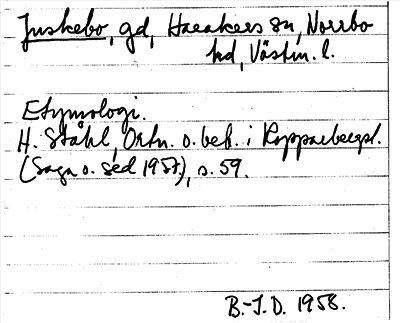 Juskebo, gd, Haraker sn, Norrbo
hd, Västm. l.
Etymologi.
H. Ståhl, Ortn. o. beb. i Kopparbergsl.
(Saga o. sed 1957), s. 59.
B.-I.D. 1958.